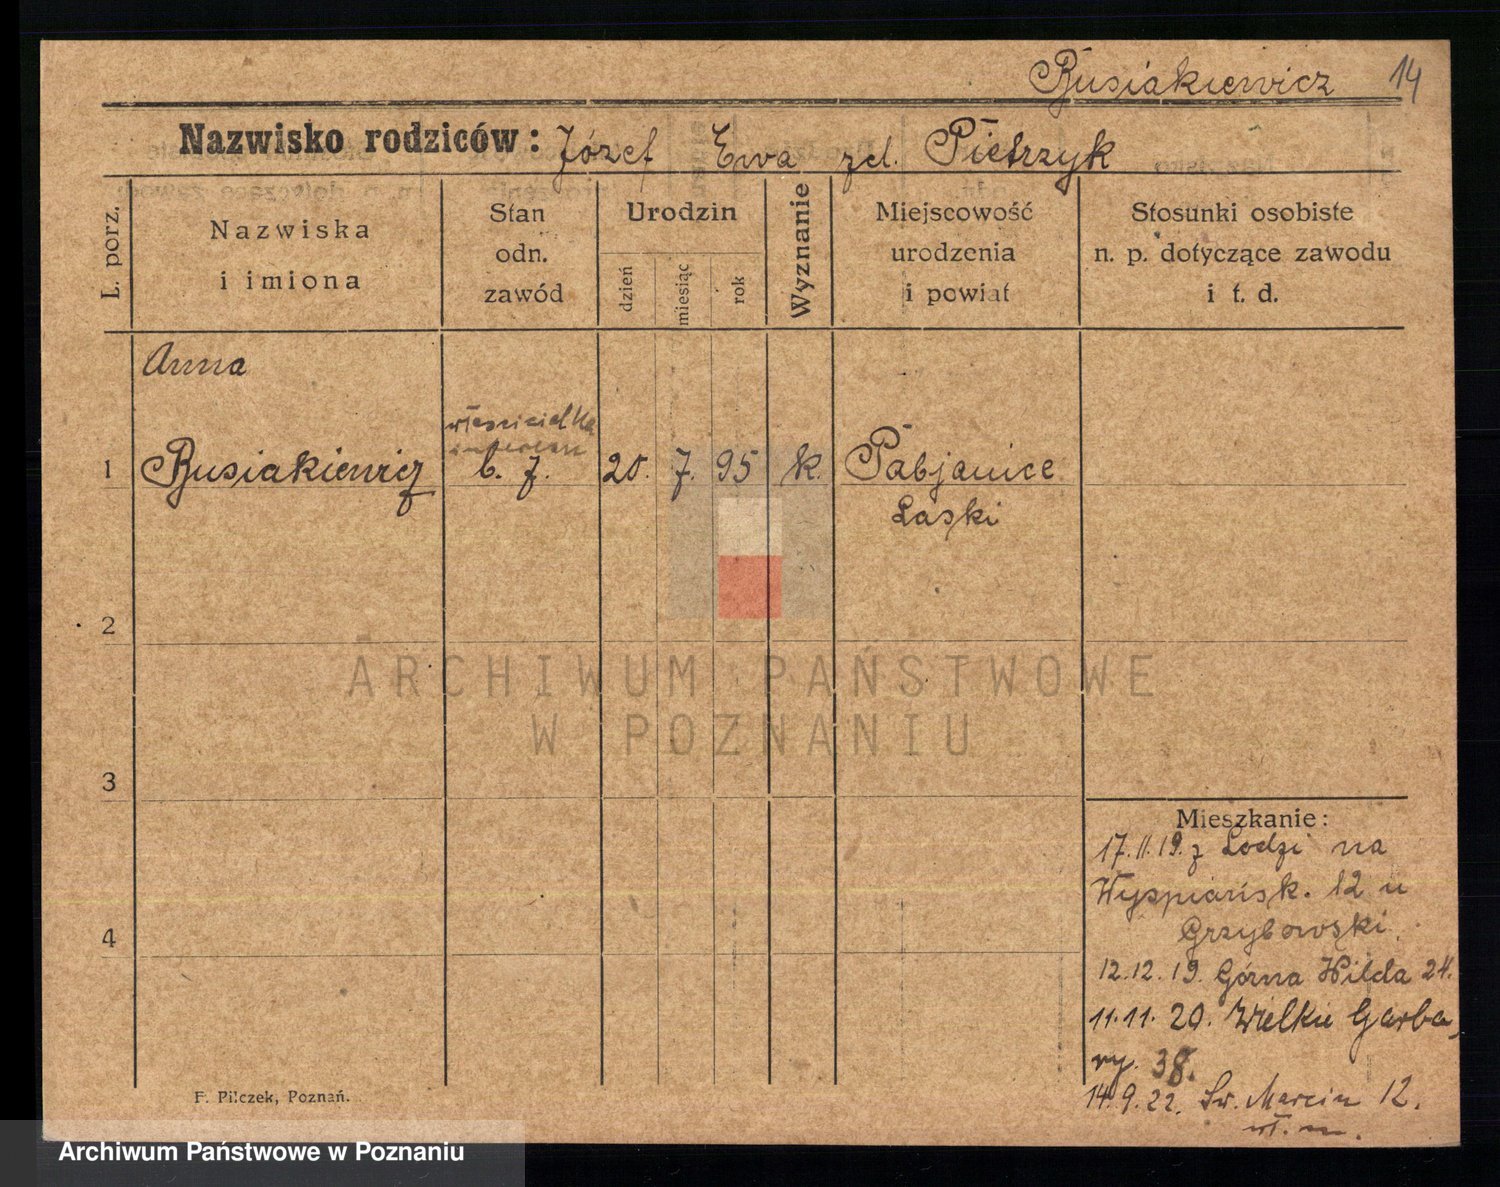 Busiakiewicz 14
Nazwisko rodziców: Józef Ewa zd. Pietrzyk
L. porz.
Nazwiska
i imiona
Stan
odn.
zawód
Urodzin
dzień
miesiąc
rok
Wyznanie
Miejscowość
urodzenia
i powiat
Stosunki osobiste
n. p. dotyczące zawodu
i t. d.
Anna
właścicielka
1 Busiakiewicz b. z. 20. 7. 95 k. Pabjanice
Łaski
2
ARCHIWUM PAŃSTWOWE
W POZNANIU
3
4
Mieszkanie:
17.11.19. z Łodzi na
Wyspiańsk. 12 u
Grzybowski.
12.12.19. Górna Wilda 24.
11.11.20. Wielkie Garba,
ry. 38.
14.9.22. Św. Marcin 12.
wł. m.
F. Pilczek, Poznań.
Archiwum Państwowe w Poznaniu